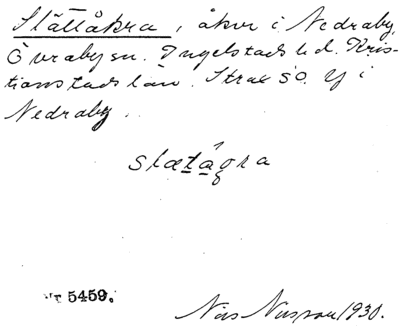 Slättåkra, åker i Nedraby,
Övraby sn. Ingelstads hd. Kris-
tianstads län. Strax SO. Y i
Nedraby.
slætågra
5459.
Nils Nilsson 1930.